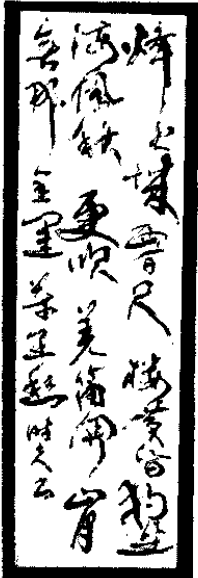 烽火城西百尺楼黄昏独坐
海风秋更吹羌笛关山月
无那金闺万里愁